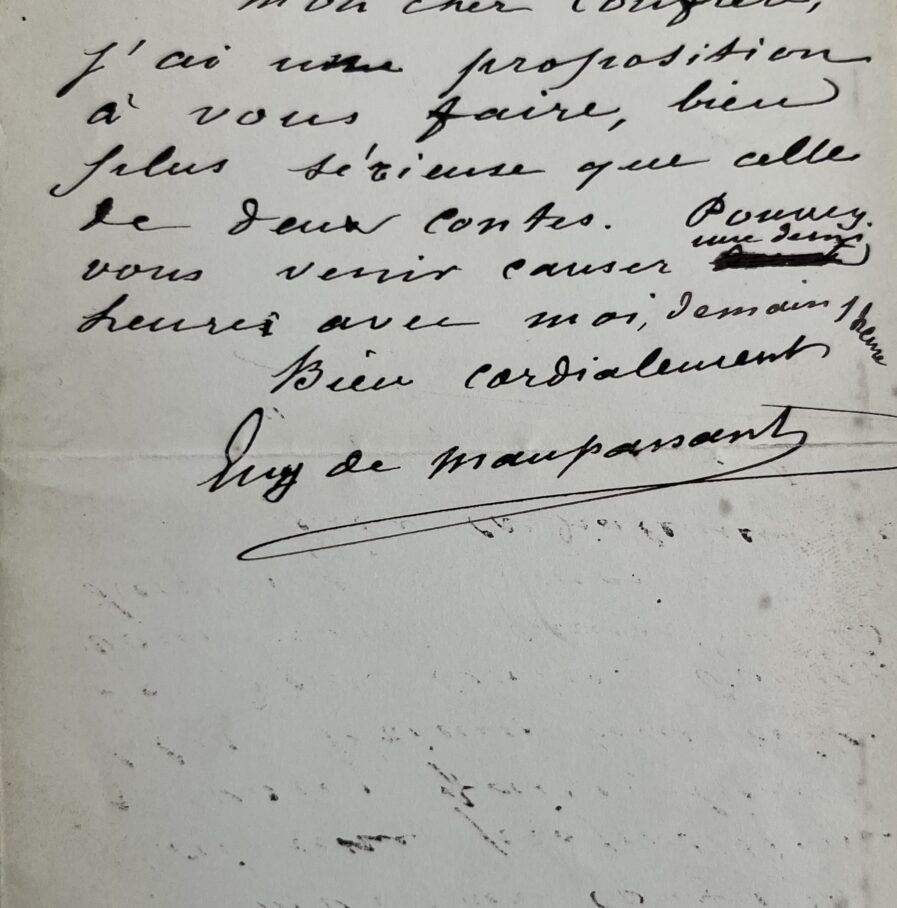 Mon cher confrère,
j'ai une proposition
à vous faire, bien
plus sérieuse que celle
de deux contes. Pouvez-
une demi
vous venir causer
heure avec moi, demain 1 heure
Bien cordialement
Guy de Maupassant